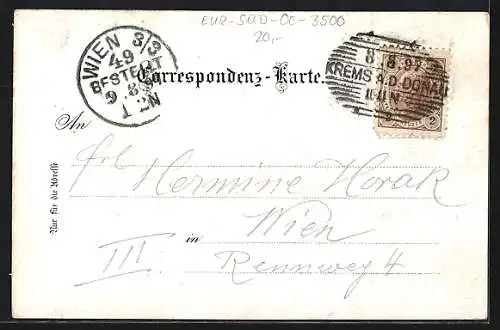 EUR-SÜD-OC-3500
20,-
WIEN 3/3
49
BESTELLT
9. 8.
1-2N
Correspondenz-Karte.
8 8 99
KREMS A.D. DONAU
11-12N
An
Frl. Hermine Horak
Wien
III in Rennweg 4
Nur für die Adresse